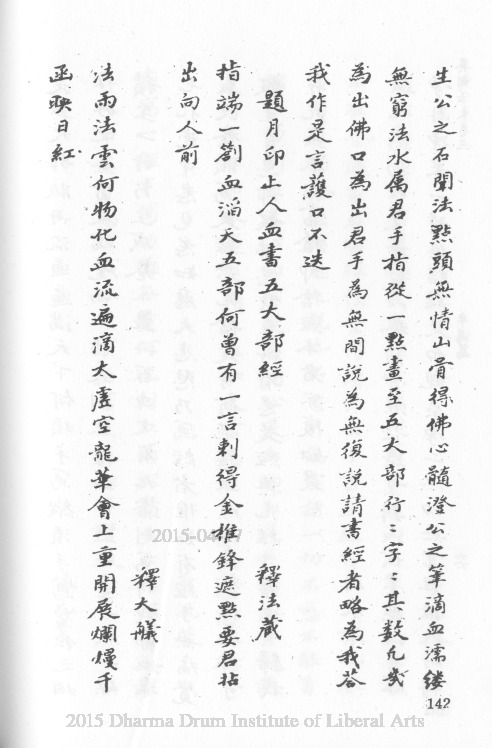 生公之石聞法點頭無情山骨得佛心髓澄公之筆滴血濡縷
無窮法水屬君手指從一點畫至五大部行〻字〻其數凡幾
為出佛口為出君手為無間說為無復說請書經者略為我答
我作是言護口不迭
題月印上人血書五大部經
釋法藏
指端一劄血滔天五部何曾有一言剌得金椎鋒遮點要君拈
出向人前
釋大艤
法雨法雲何物化血流遍滴太虛空龍華會上重開展爛熳千
函映日紅
2015-04-17
142
2015 Dharma Drum Institute of Liberal Arts